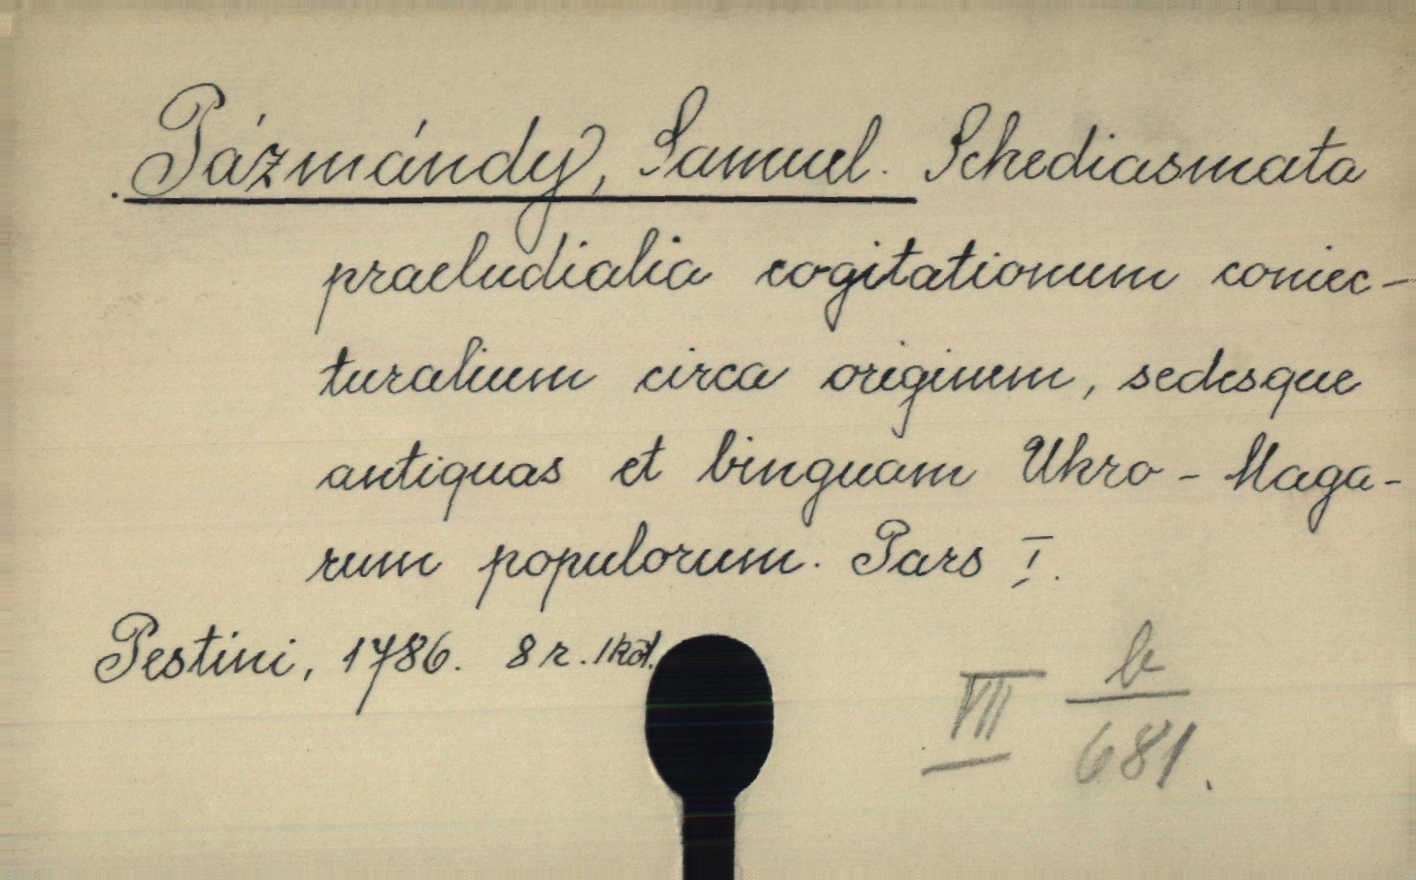 Pázmándy, Samuel. Schediasmata
praeludialia cogitationum coniec-
turalium circa originem, sedesque
antiquas et linguam Uhro-Maga-
rum populorum. Pars I.
Pestini, 1786. 8 r. 1 köt.
VII b
681.